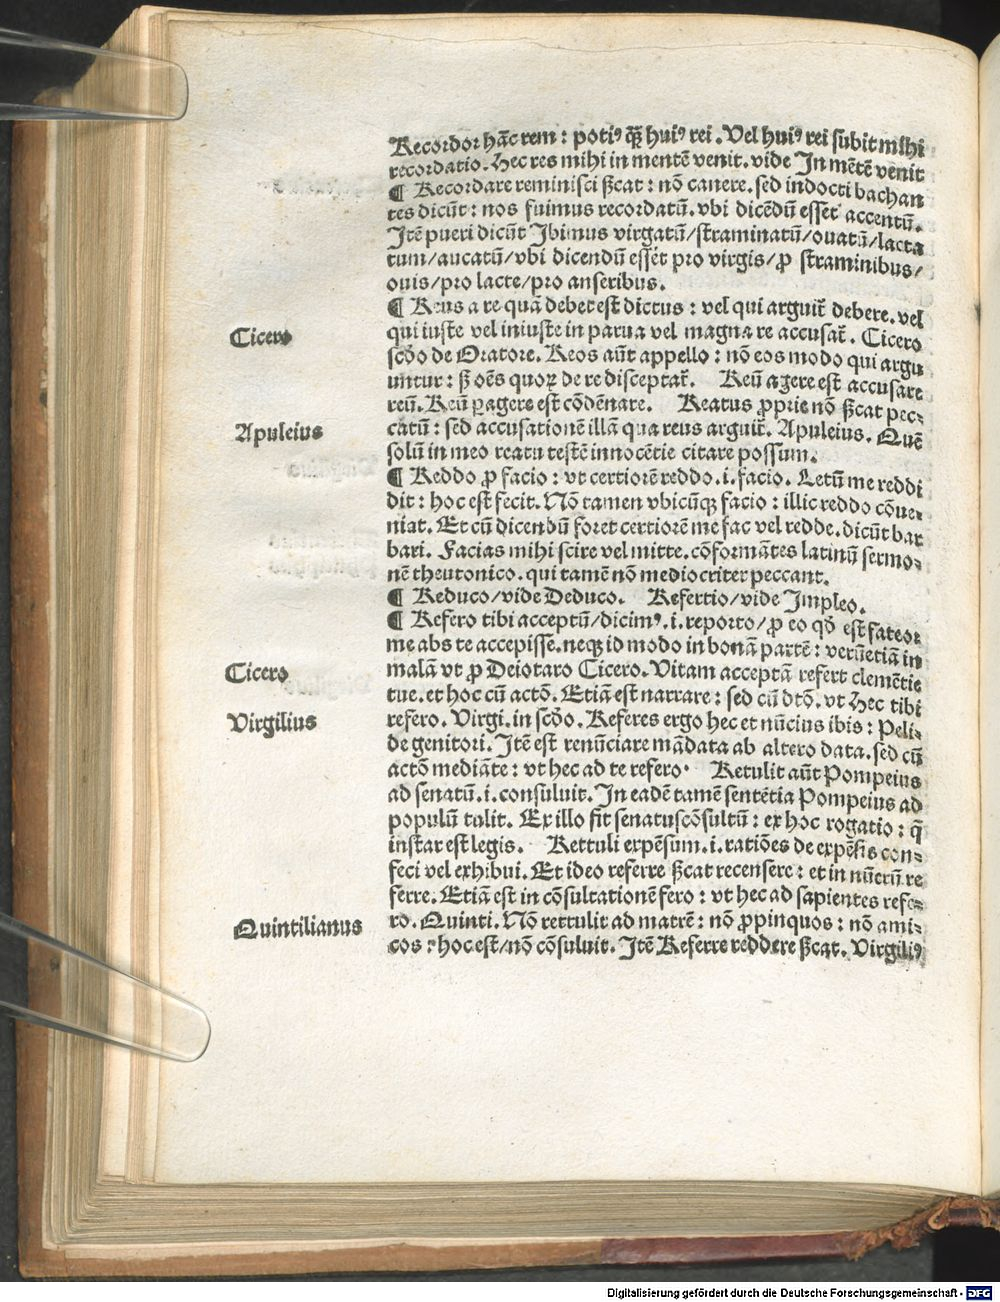 Recordor hāc rem: potiꝰ q̄ꝫ huiꝰ rei. Vel huiꝰ rei subit mihi
recordatio. Hec res mihi in mentē venit. vide In mētē venit
¶ Recordare reminisci ẞcat: nō canere. sed indocti bachan
tes dicūt: nos fuimus recordatū. vbi dicēdū esset accentū.
Itē pueri dicūt Ibimus virgatū/straminatū/ouatū/lacta
tum/aucatū/vbi dicendū esset pro virgis/ꝓ straminibus/
ouis/pro lacte/pro anseribus.
¶ Reus a re quā debet est dictus: vel qui arguit̄ debere. vel
Cicero
qui iuste vel iniuste in parua vel magna re accusat̄. Cicero
scd̄o de Oratore. Reos aūt appello: nō eos modo qui argu
untur: ẞ oēs quoꝝ de re disceptat̄. Reū agere est accusare
reū. Reū ꝑagere est cōdēnare. Reatus ꝓprie nō ẞcat pec⸗
Apuleius
catū: sed accusationē illā qua reus arguit̄. Apuleius. Quē
solū in meo reatu testē innocētie citare possum.
¶ Reddo ꝓ facio: vt certiorē reddo .i. facio. Letū me reddi
dit: hoc est fecit. Nō tamen vbicūqꝫ facio: illic reddo cōue⸗
niat. Et cū dicendū foret certiorē me fac vel redde. dicūt bar
bari. Facias mihi scire vel mitte. cōformātes latinū sermo⸗
nē theutonico. qui tamē nō mediocriter peccant.
¶ Reduco/vide Deduco. Refertio/vide Impleo.
¶ Refero tibi acceptū/dicimꝰ .i. reporto/ꝓ eo qd̄ est fateor
me abs te accepisse. neqꝫ id modo in bonā partē: verūetiā in
Cicero
malā vt ꝓ Deiotaro Cicero. Vitam acceptā refert clemētie
tue. et hoc cū actō. Etiā est narrare: sed cū dtō. vt Hec tibi
Virgilius
refero. Virgi. in scd̄o. Referes ergo hec et nūcius ibis: Peli⸗
de genitori. Itē est renūciare mādata ab altero data. sed cū
actō mediāte: vt hec ad te refero. Retulit aūt Pompeius
ad senatū .i. consuluit. In eadē tamē sentētia Pompeius ad
populū tulit. Ex illo fit senatuscōsultū: ex hoc rogatio: q̄
instar est legis. Rettuli expēsum .i. ratiōes de expēsis con⸗
feci vel exhibui. Et ideo referre ẞcat recensere: et in nūerū re
ferre. Etiā est in cōsultationē fero: vt hec ad sapientes refe⸗
Quintilianus
ro. Quinti. Nō rettulit ad matrē: nō ꝓpinquos: nō ami⸗
cos: hoc est/nō cōsuluit. Itē Referre reddere ẞcat. Virgiliꝰ
Digitalisierung gefördert durch die Deutsche Forschungsgemeinschaft - DFG